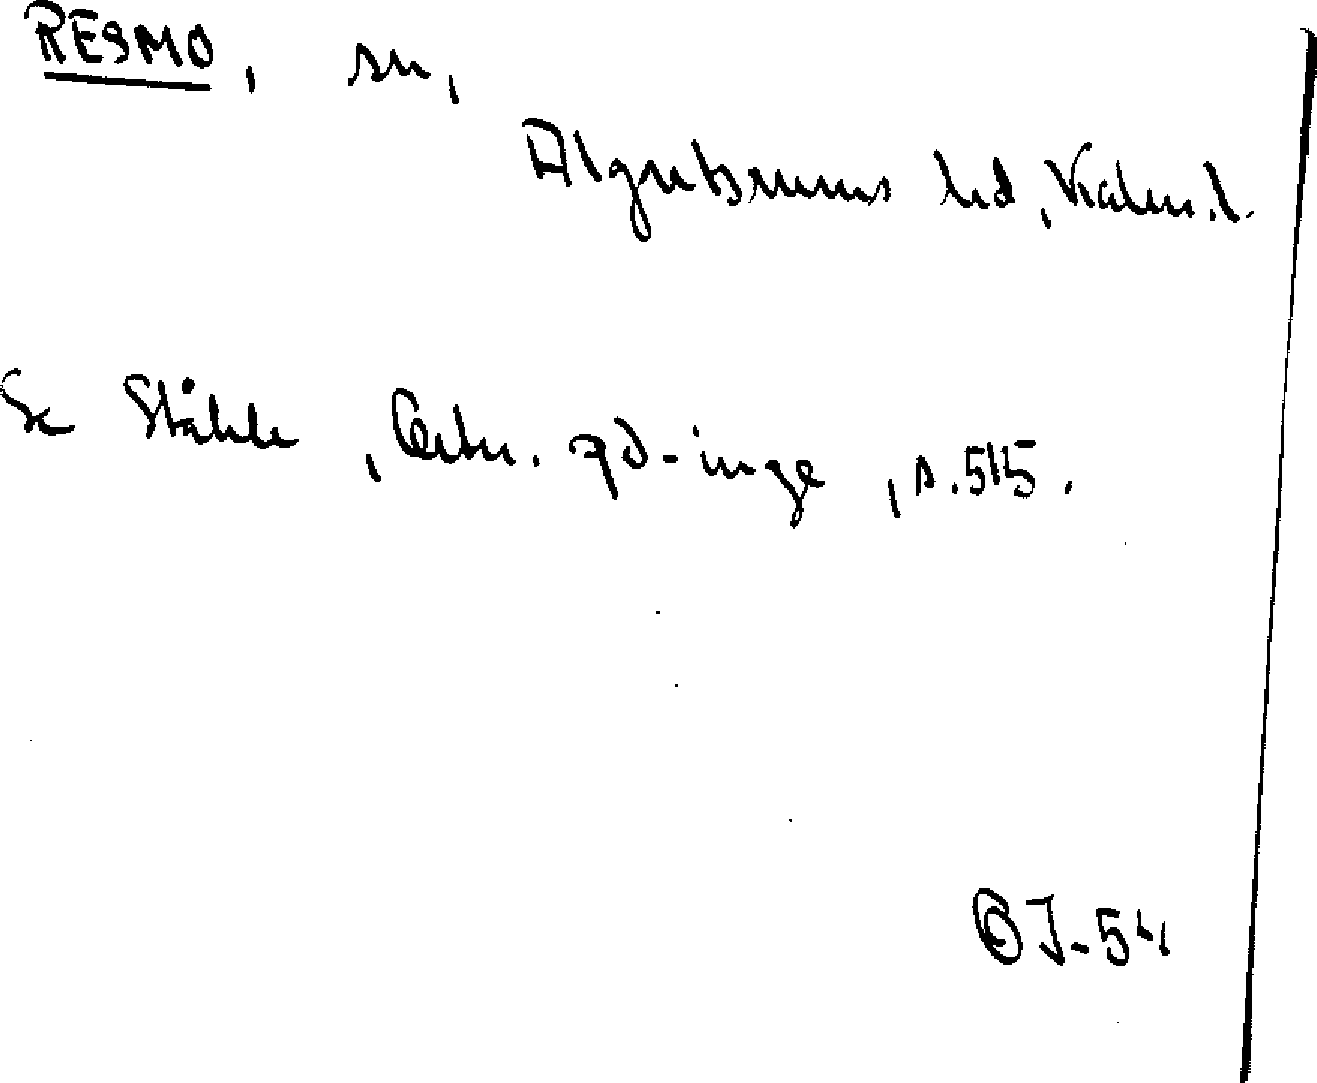 RESMO, sn,
Algutsrums hd, Kalm. l.
Se Ståhle, Ortn. på -inge, s. 515.
OJ-54